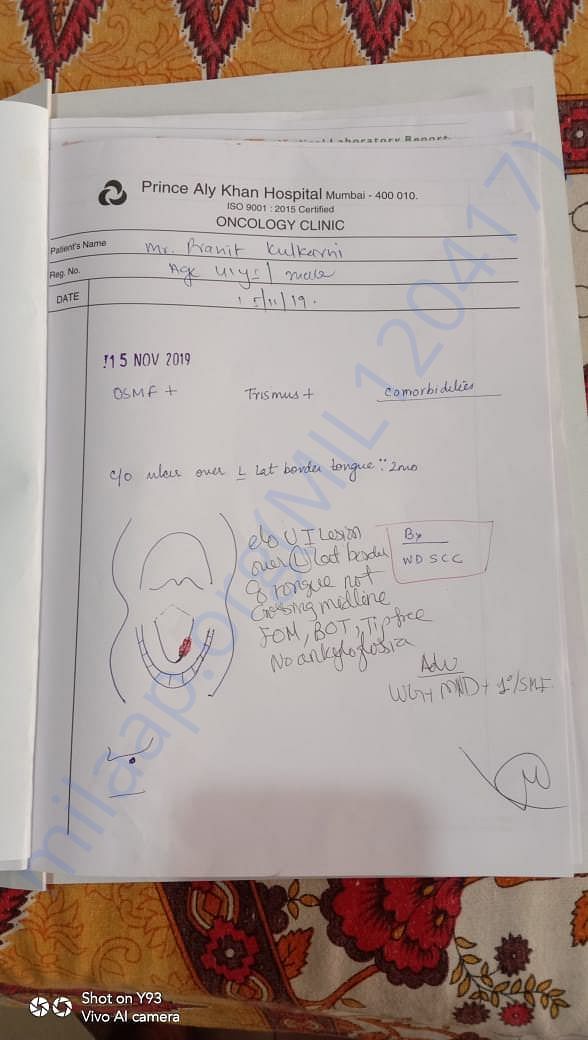 Laboratory Report
Prince Aly Khan Hospital Mumbai - 400 010.
ISO 9001 : 2015 Certified
ONCOLOGY CLINIC
Patient's Name Mr. Pranit Kulkarni
Reg. No. Age 41yrs/ male
DATE 15/11/19.
15 NOV 2019
OSMF + Trismus + comorbidities
c/o ulcer over L Lat border tongue :: 2mo
e/o U I Lesion
over L lat border
of tongue not
Crossing midline
FOM, BOT, Tip free
No ankyloglossia
Bx
WD SCC
Adv
WGE + MND + 1°/SMF
milaap.org(MIL120417)
Shot on Y93
Vivo AI camera